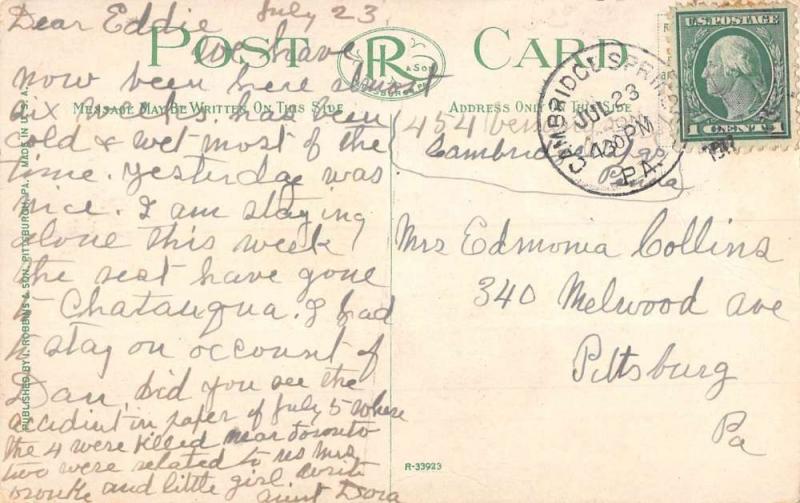 Dear Eddie July 23
We have
now been here almost
six weeks. has been
cold & wet most of the
time. Yesterday was
nice. I am staying
alone this week
the rest have gone
to Chatauqua. I had
to stay on account of
Dan, Did you see the
accident in paper of July 5 where
the 4 were killed near toronto
two were related to us Mrs
and little girl write
Aunt Dora
POST CARD
R & SON
PITTSBURG, PA.
MESSAGE MAY BE WRITTEN ON THIS SIDE
ADDRESS ONLY ON THIS SIDE
PUBLISHED BY I. ROBBINS & SON, PITTSBURGH, PA. MADE IN U. S. A.
U.S. POSTAGE
1 CENT 1
CAMBRIDGE SPRINGS
JUL 23
4 30 PM
PA.
454
Cambridge Spgs
Penna
Mrs Edmonia Collins
340 Melwood ave
Pittsburg
Pa
R-33923